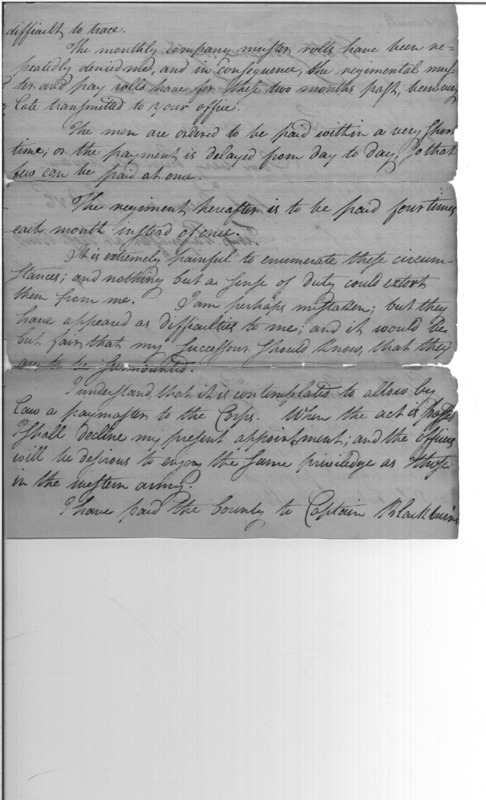 difficult to trace.
The monthly company muster rolls have been re-
peatedly denied me, and in consequence, the regimental mus-
ter and pay rolls have, for these two months past, been very
late transmitted to your office.
The men are ordered to be paid within a very short
time; or the payment is delayed from day to day, so that
few can be paid at one.
The regiment, hereafter is to be paid four times
each month instead of once.
It is extremely painful to enumerate these circum-
stances; and nothing but a sense of duty could extort
them from me. I am perhaps mistaken; but they
have appeared as difficulties to me; and it would be
but fair, that my successour should know, that they
are to be surmounted.
I understand, that it is contemplated to allow by
law a paymaster to the Corps. When the act is passed
I shall decline my present appointment; and the officers
will be desirous to enjoy the same priviledge as those
in the western army.
I have paid the bounty to Captain Blackburn